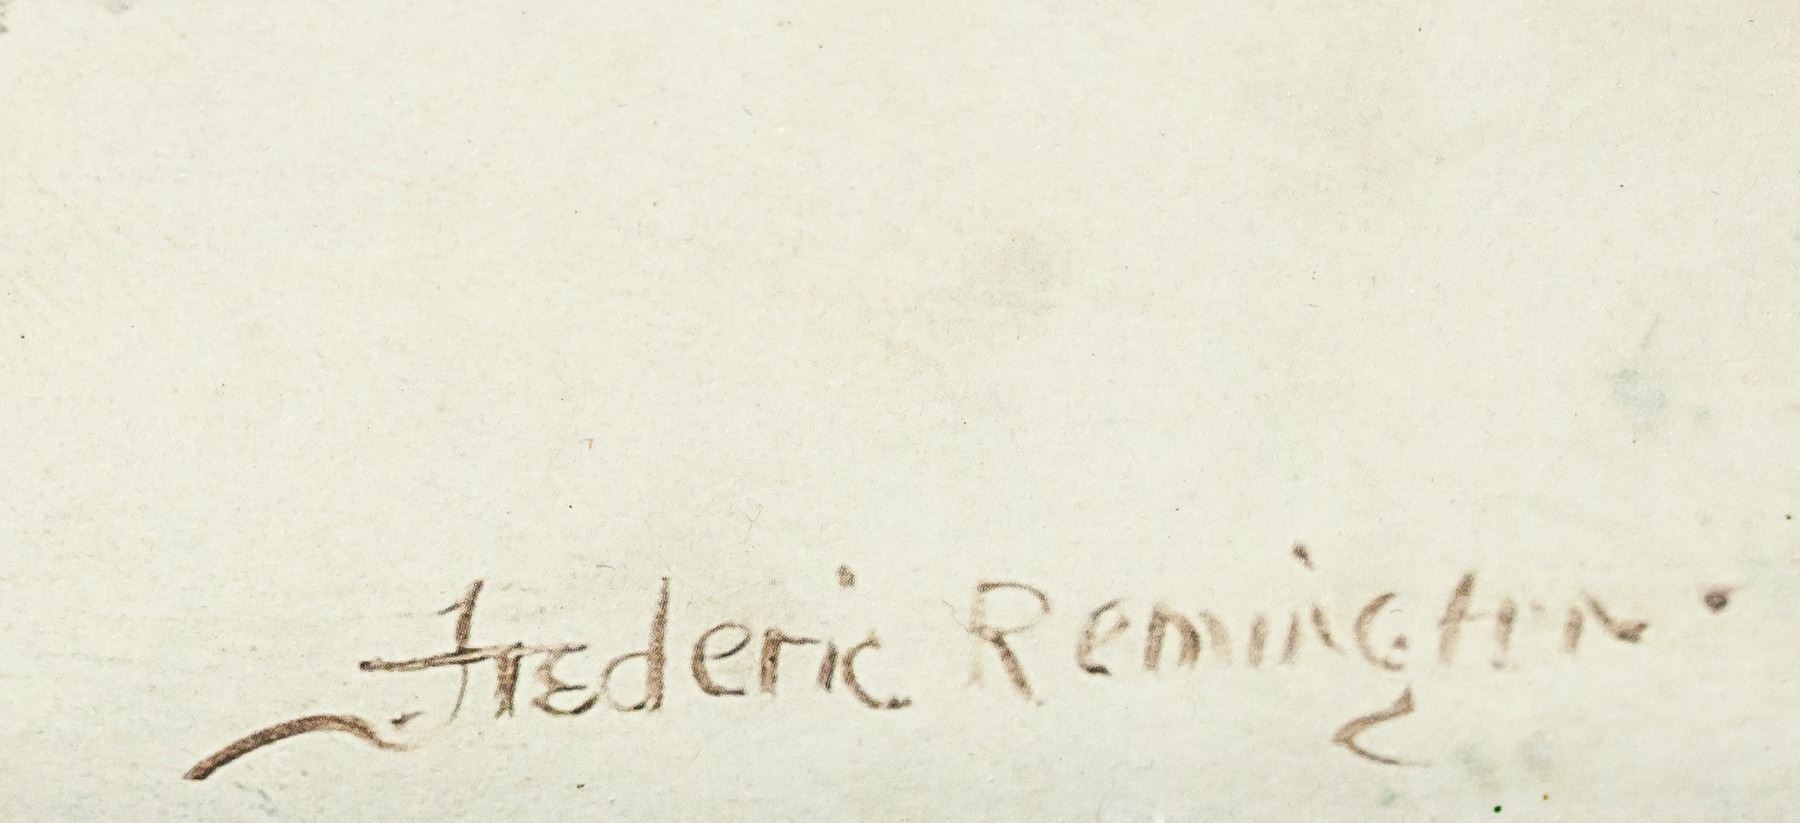 Frederic Remington.